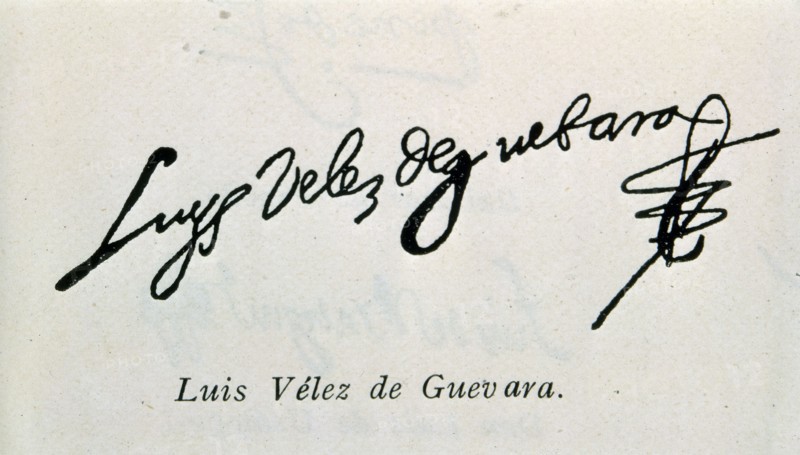 Luys Velez de guebara
Luis Vélez de Guevara.